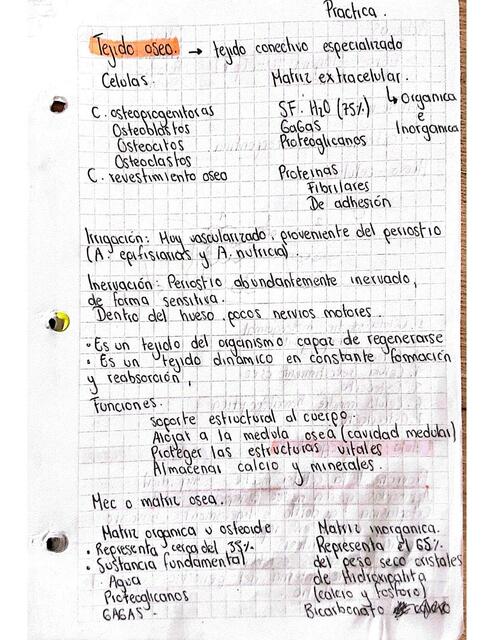 Practica.
Tejido oseo. → tejido conectivo especializado
Celulas.
Matriz extracelular.
C. osteoprogenitoras
Osteoblastos
Osteocitos
Osteoclastos
C. revestimiento oseo
SF. H2O (75%)
GaGas
Proteoglicanos
Proteinas
Fibrilares
De adhesión
↳ Organica
e
Inorganica
Irrigación: Muy vascularizado, proveniente del periostio
(A. epifisiarias y A. nutricia).
Inervación: Periostio abundantemente inervado,
de forma sensitiva.
Dentro del hueso pocos nervios motores.
• Es un tejido del organismo capaz de regenerarse
• Es un tejido dinámico en constante formación
y reabsorción,
Funciones.
soporte estructural al cuerpo.
Alojar a la medula osea (cavidad medular)
Proteger las estructuras vitales
Almacenar calcio y minerales.
Mec o matriz osea.
Matriz organica u osteoide
• Representa cerca del 35%.
• Sustancia fundamental
Agua
Proteoglicanos
GAGAS.
Matriz inorganica.
Representa el 65%
del peso seco cristales
de Hidroxiapatita
(calcio y fosforo)
Bicarbonato